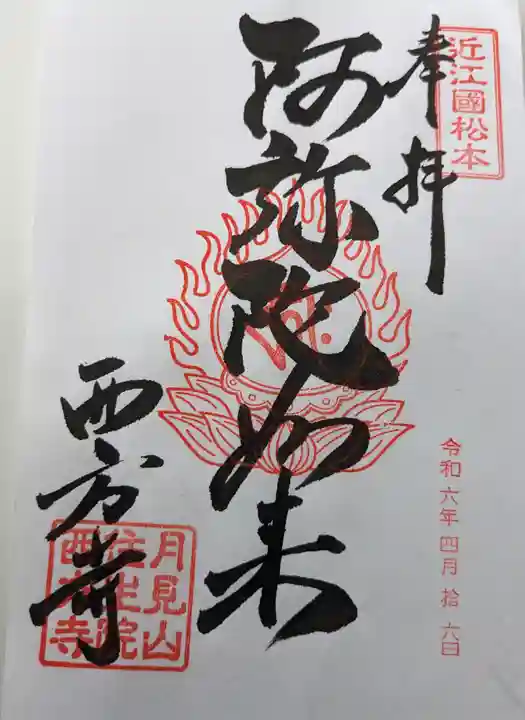 近江國松本
奉拝
令和六年四月拾六日
阿弥陀如来
西方寺
月見山
往生院
西方寺